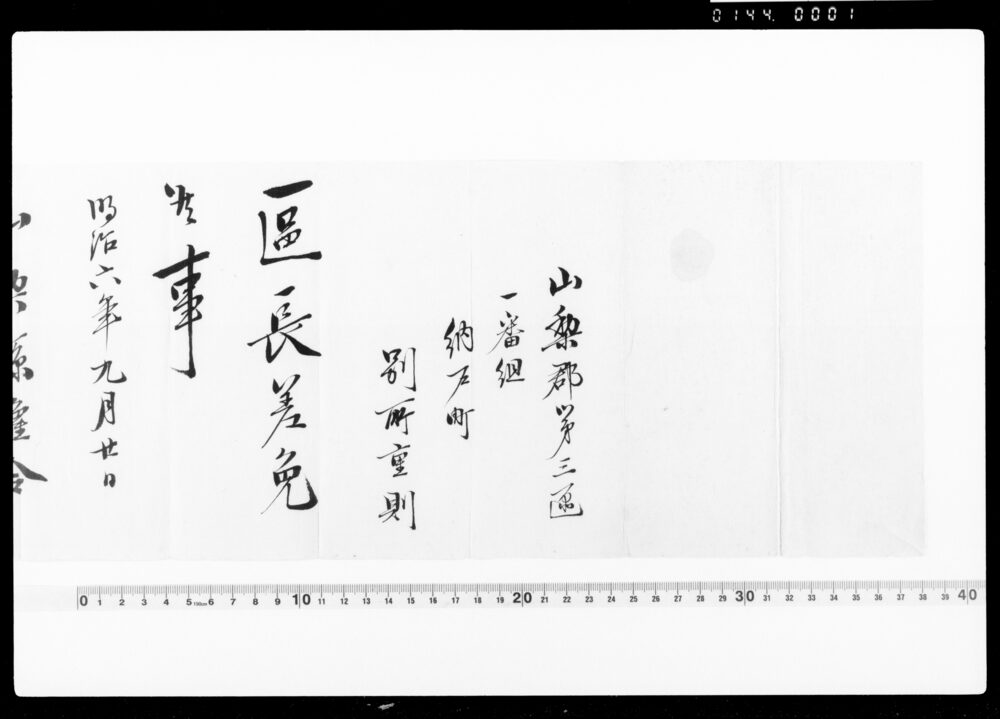 0144. 0001
山梨郡第三區
一番組
納戸町
別所重則
區長差免
候事
明治六年九月廿日
山梨縣權令
0 1 2 3 4 5 6 7 8 9 10 11 12 13 14 15 16 17 18 19 20 21 22 23 24 25 26 27 28 29 30 31 32 33 34 35 36 37 38 39 40